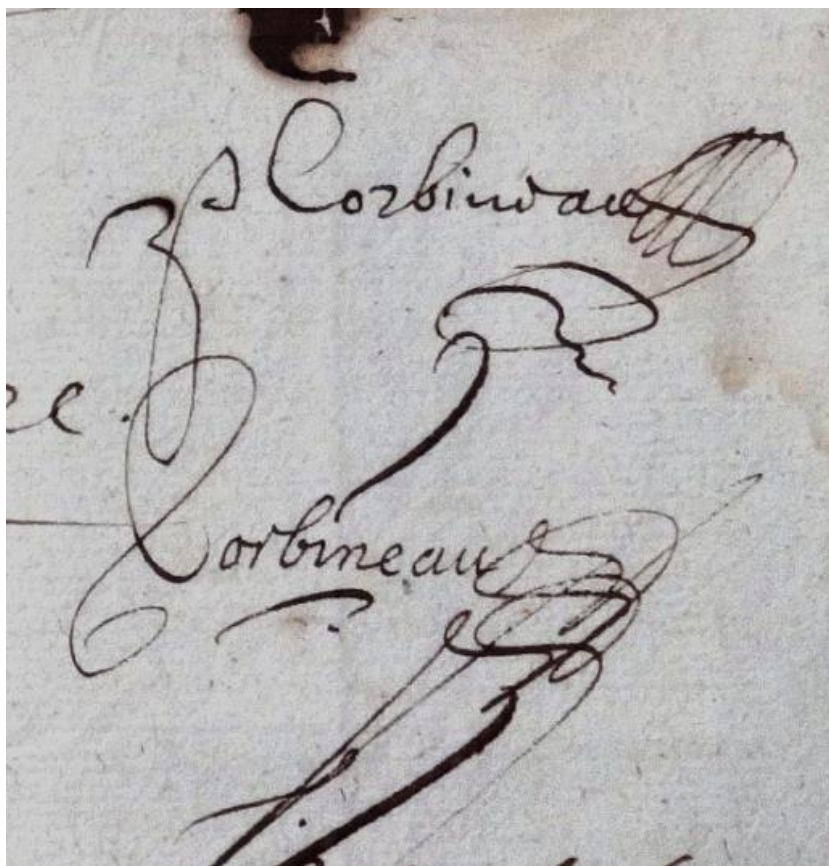 Corbineau
ee.
Corbineau